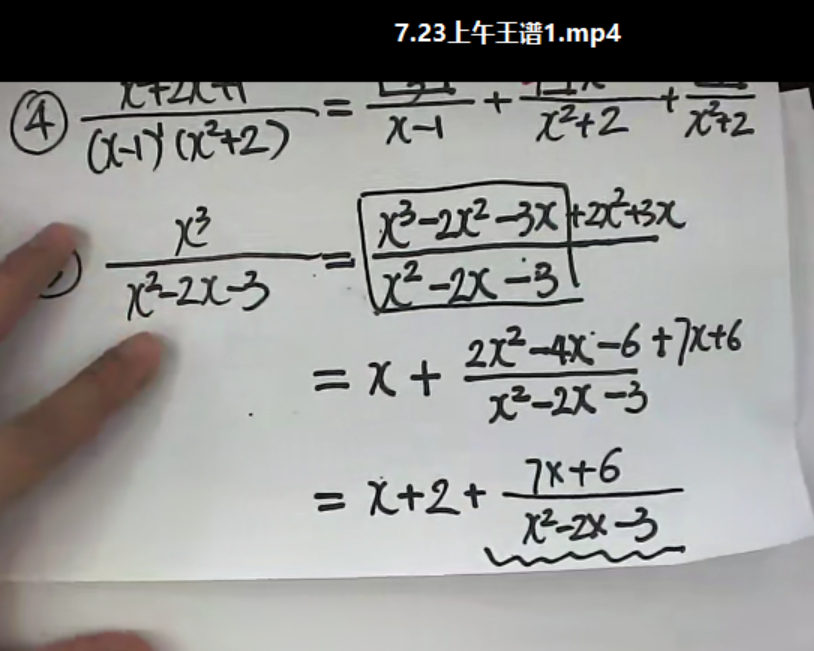 7.23上午王谱1.mp4
④ x²+2x+1 / (x-1)(x²+2) = / x-1 + / x²+2 + / x²+2
x³ / x²-2x-3 = x³-2x²-3x+2x²+3x / x²-2x-3
= x + 2x²-4x-6+7x+6 / x²-2x-3
= x+2+ 7x+6 / x²-2x-3